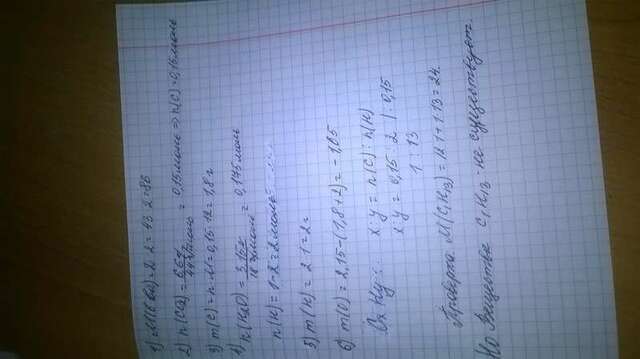 2) n(CO₂) = 6,6г / 44 г/моль = 0,15 моль ⇒ n(C) = 0,15 моль
3) m(C) = n·M = 0,15·12 = 1,8 г
4) n(H₂O) = 3,15г / 18 г/моль = 0,175 моль
n(H) = 1·2 = 2 моль
5) m(H) = 2·1 = 2г
6) m(O) = 2,15 - (1,8 + 2) = - 1,65
CxHy: x:y = n(C) : n(H)
x:y = 0,15 : 2 | : 0,15
1 : 13
Проверка M(C₁H₁₃) = 11 + 1·13 = 24.
Но вещество C₁H₁₃ - не существует.